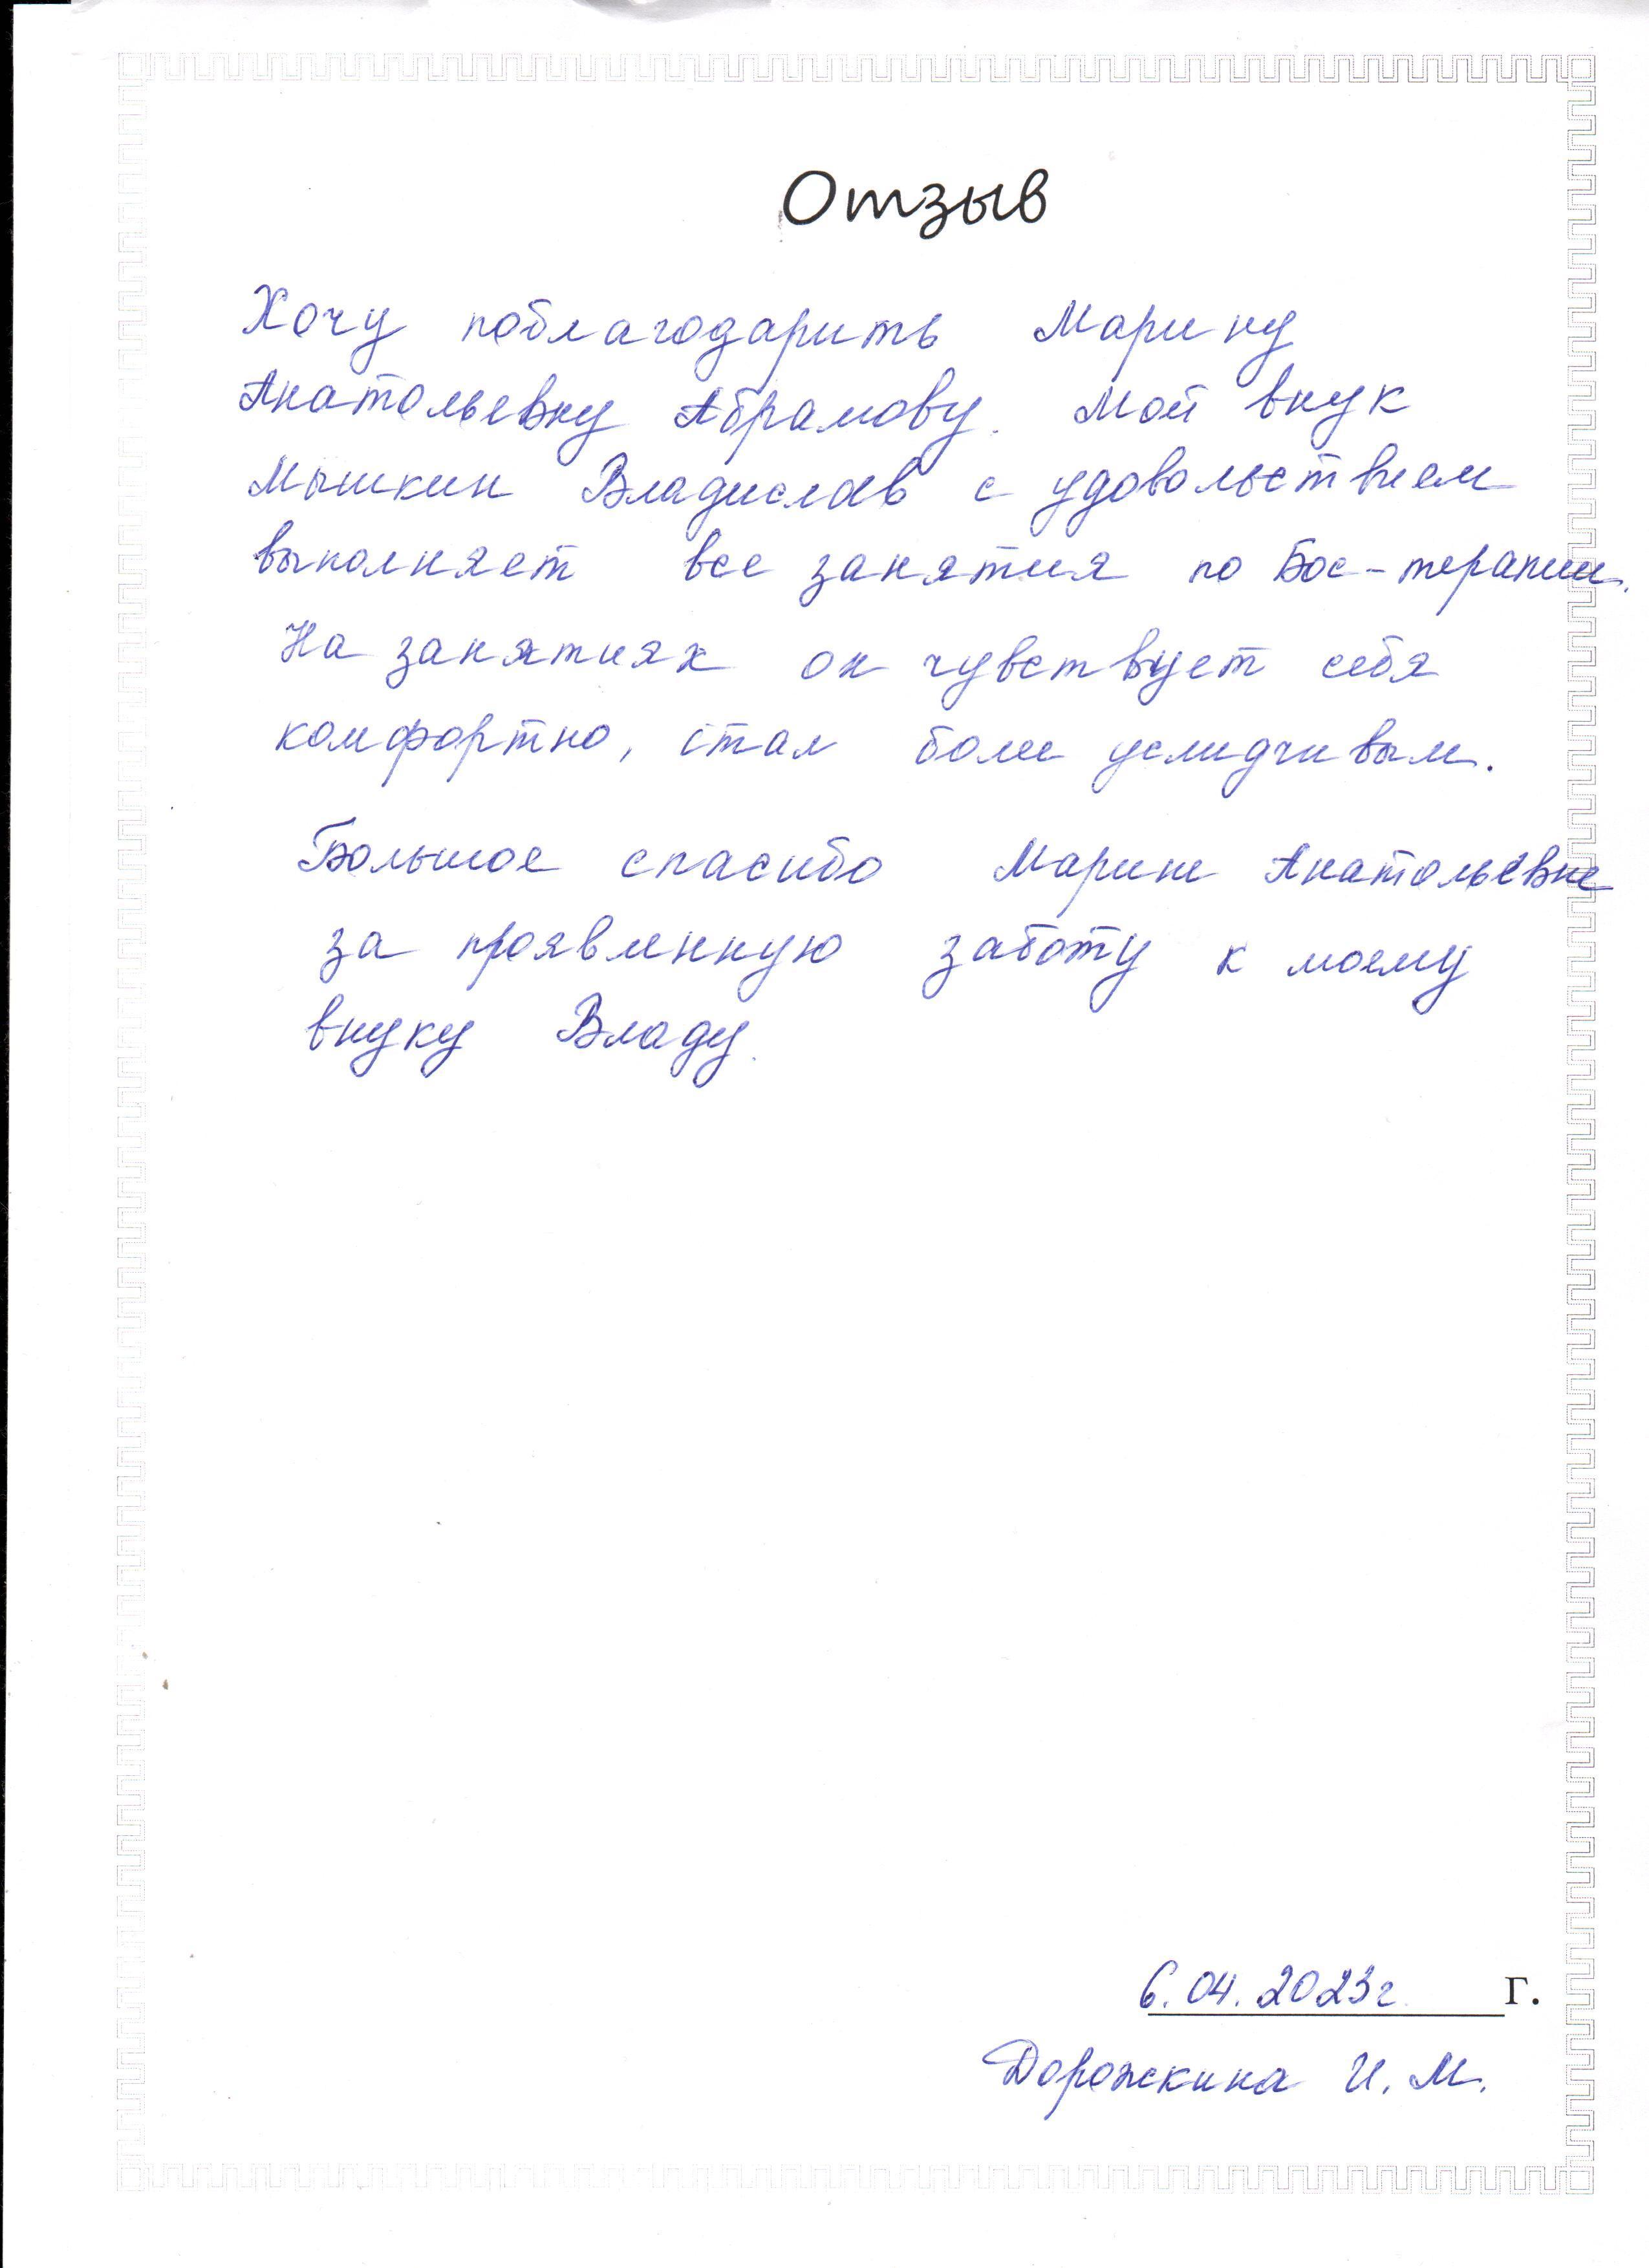 Отзыв
Хочу поблагодарить Марину
Анатольевну Абрамову. Мой внук
Мышкин Владислав с удовольствием
выполняет все занятия по Бос-терапии.
На занятиях он чувствует себя
комфортно, стал более усидчивым.
Большое спасибо Марине Анатольевне
за проявленную заботу к моему
внуку Владу.
6.04.2023г. г.
Дорожкина И.М.